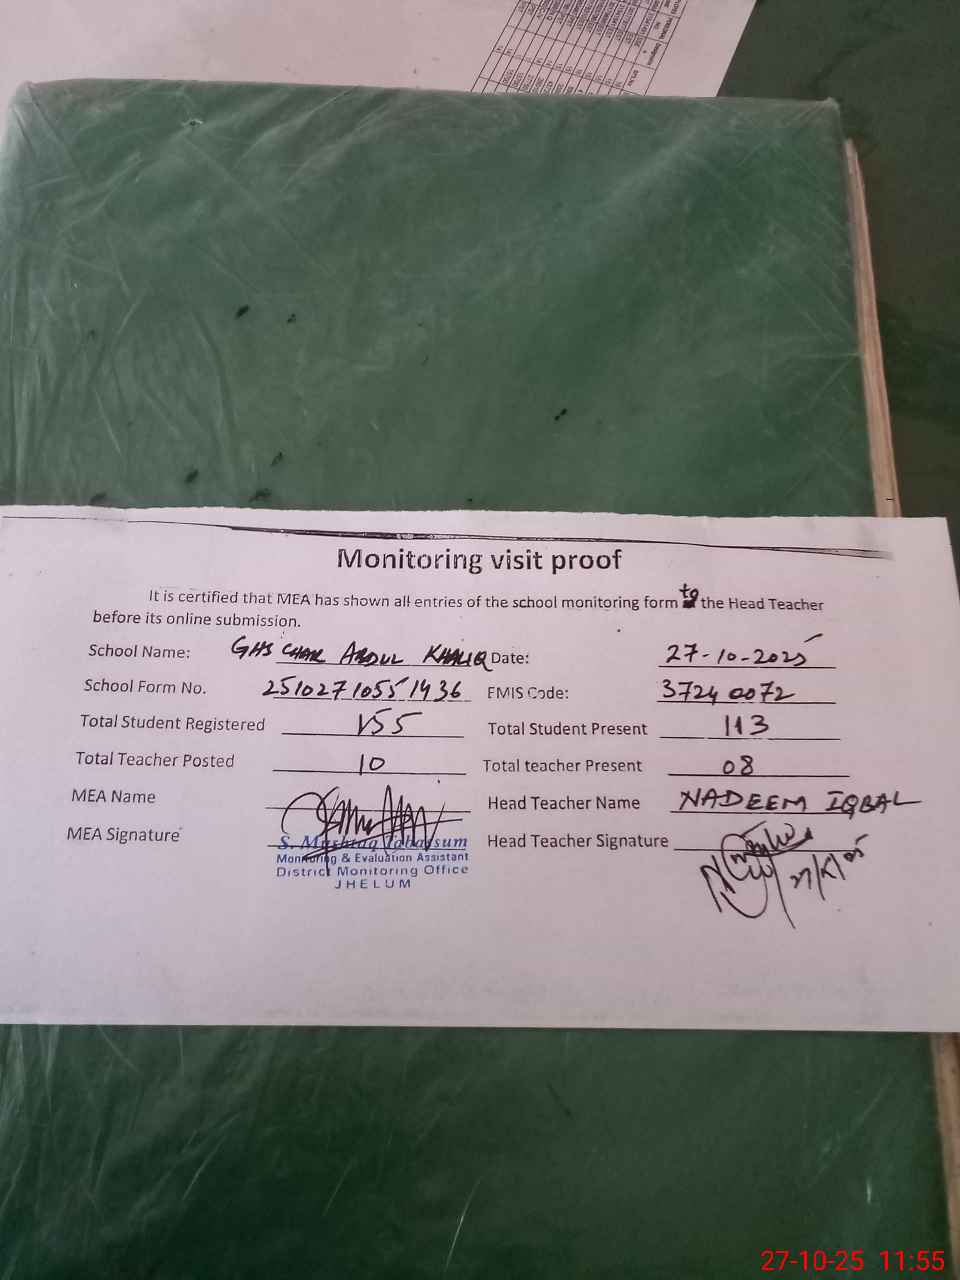 Monitoring visit proof
It is certified that MEA has shown all entries of the school monitoring form to the Head Teacher
before its online submission.
School Name: GHS CHAK ABDUL KHALIQ Date: 27-10-2025
School Form No. 2510271055 1436 EMIS Code: 37240072
Total Student Registered 155 Total Student Present 113
Total Teacher Posted 10 Total teacher Present 08
MEA Name Head Teacher Name NADEEM IQBAL
MEA Signature Head Teacher Signature
S. Mushtaq Tabassum
Monitoring & Evaluation Assistant
District Monitoring Office
JHELUM
27-10-25 11:55